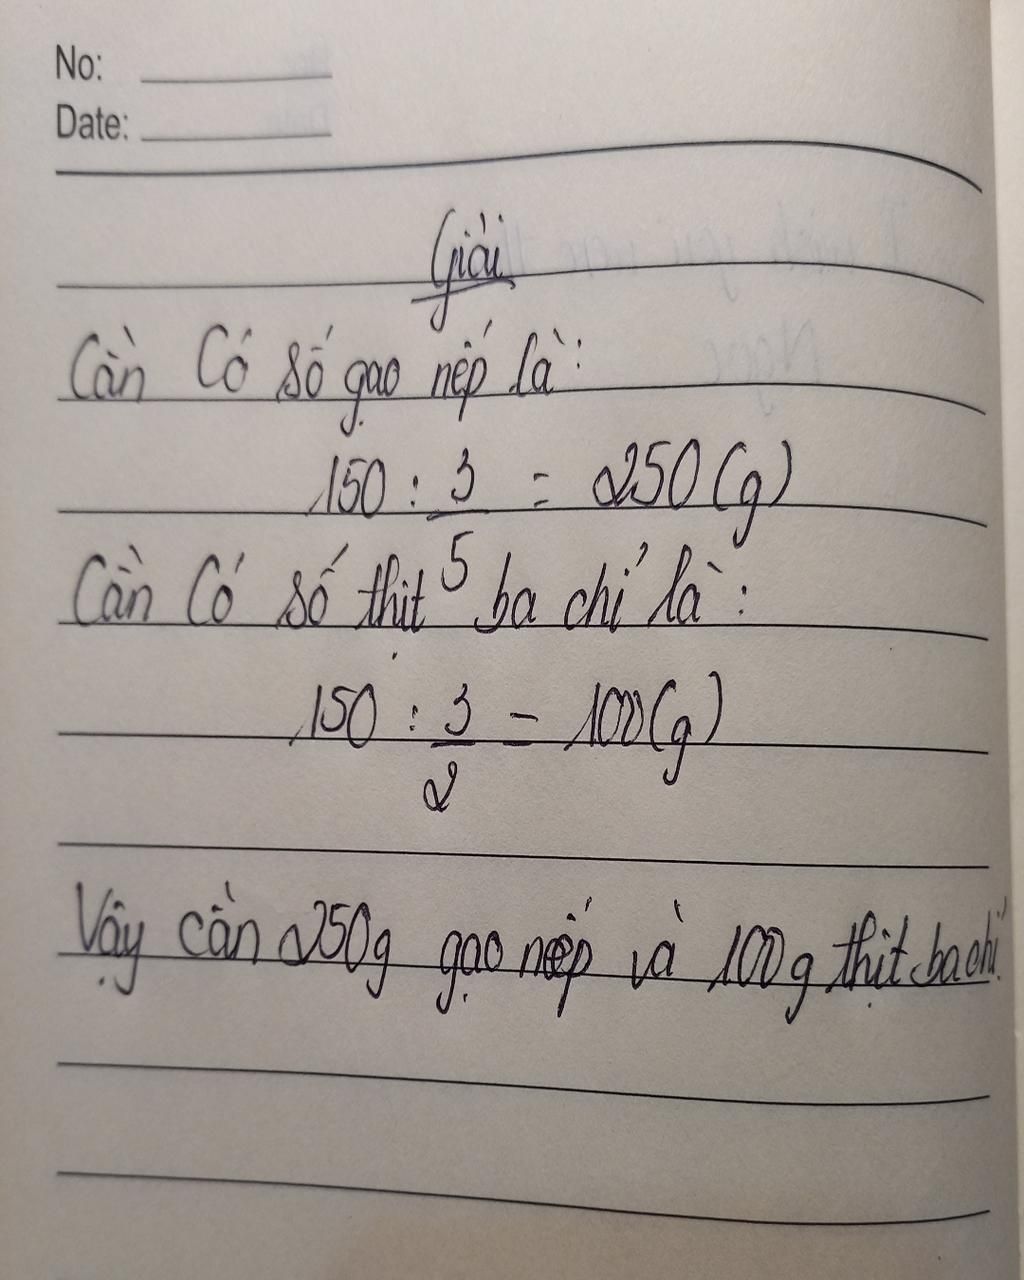 No:
Date:
Giải
Cần Có số gạo nếp là:
150 : 3/5 = 250 (g)
Cần Có số thịt ba chỉ là:
150 : 3/2 = 100 (g)
Vậy cần 250g gạo nếp và 100g thịt ba chỉ.